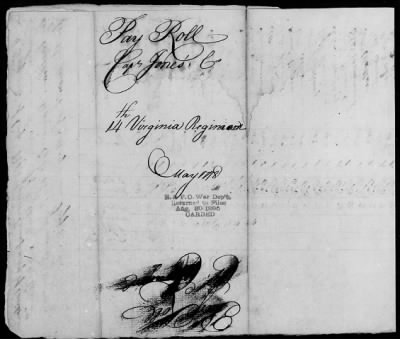 Pay Roll
Capt Jones' C
14th Virginia Regiment
May 1778
R. & P. O. War Dept.
Returned to Files
Aug. 20 1895
CARDED